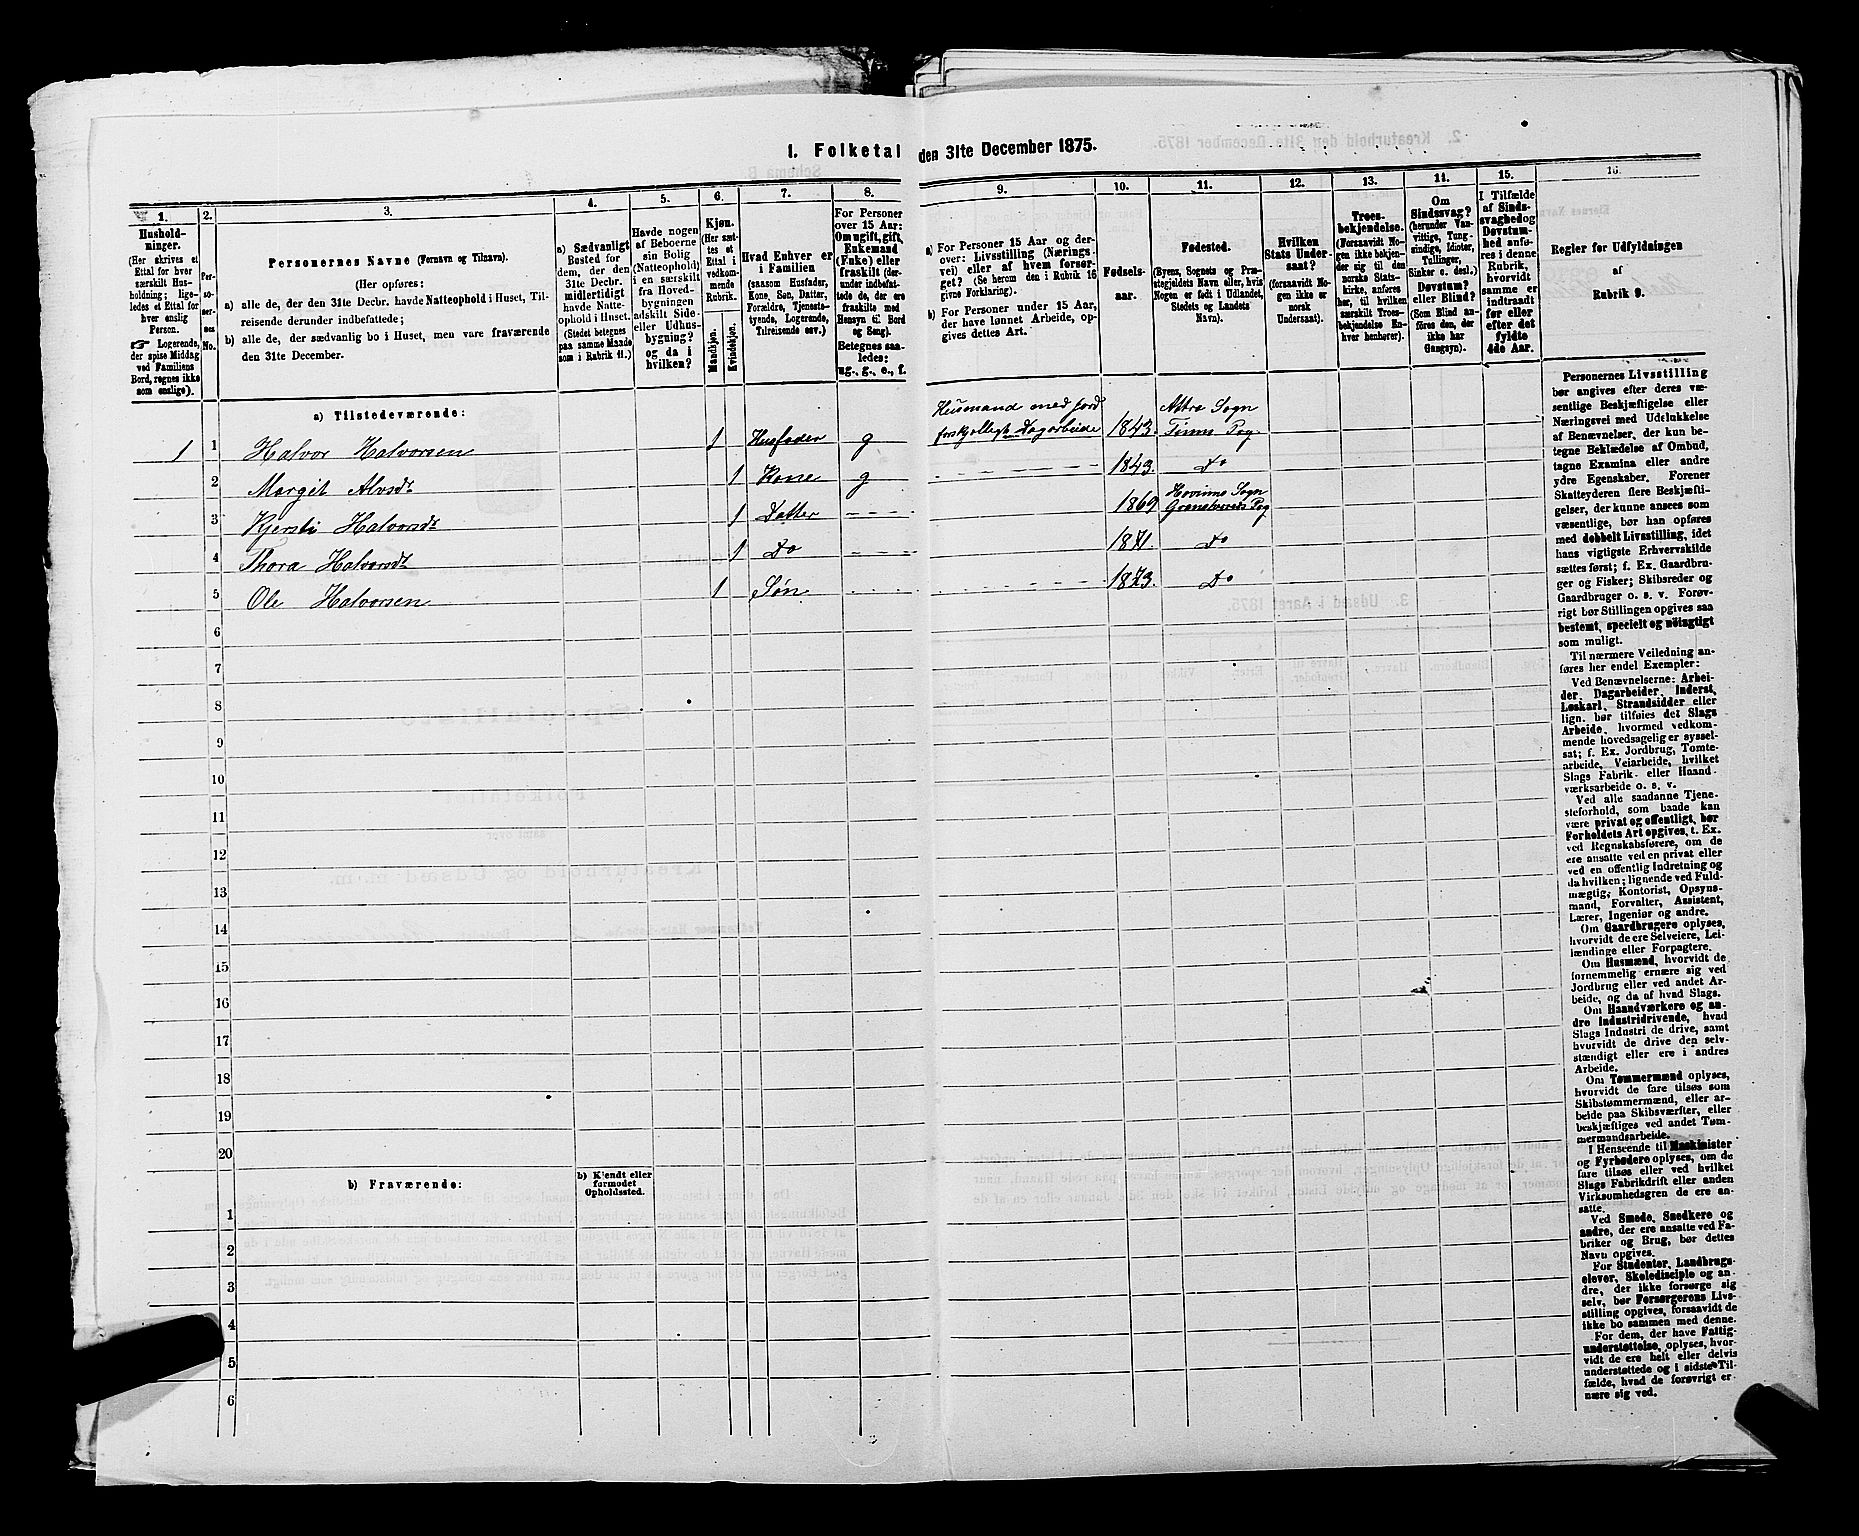 1. Folketal den 31te December 1875.
1.
Husholdninger.
(Her skrives et
Ettal for hver
særskilt Husholdning;
ligeledes
et Ettal for
hver enslig
Person.
☞ Logerende,
der spise Middag
ved Familiens
Bord, regnes ikke
som enslige).
2.
Personernes
No.
3.
Personernes Navne (Fornavn og Tilnavn).
(Her opføres:
a) alle de, der den 31te Decbr. havde Natteophold i Huset, Tilreisende
derunder indbefattede;
b) alle de, der sædvanlig bo i Huset, men vare fraværende
den 31te December.
4.
a) Sædvanligt
Bosted for
dem, der den
31te Decbr.
midlertidigt
havde Natteophold
i Huset.
(Stedet betegnes
paa samme Maade
som i Rubrik 11.)
5.
Havde nogen
af Beboerne
sin Bolig
(Natteophold)
i en særskilt
fra Hovedbygningen
adskilt Side-
eller Udhusbygning?
og da i
hvilken?
6.
Kjøn.
(Her sættes
et
Ettal i
vedkommende
Rubrik.
Mandkjøn.
Kvindekjøn.
7.
Hvad Enhver er
i Familien
(saasom Husfader,
Kone, Søn, Datter,
Forældre, Tjenestetyende,
Logerende,
Tilreisende osv.)
8.
For Personer
over 15 Aar:
Om ugift, gift,
Enkemand
(Enke) eller
fraskilt (derunder
indbefattede
de, der ere
fraskilte med
Hensyn til Bord
og Seng).
Betegnes saaledes:
ug., g., e., f.
9.
a) For Personer 15 Aar og derover:
Livsstilling (Næringsvei)
eller af hvem forsørget?
(Se herom den i Rubrik 16
givne Forklaring).
b) For Personer under 15 Aar,
der have lønnet Arbeide, opgives
dettes Art.
10.
Fødselsaar.
11.
Fødested.
(Byens, Sognets og Præstegjeldets
Navn eller, hvis
Nogen er født i Udlandet,
Stedets og Landets
Navn).
12.
Hvilken
Stats Undersaat?
(forsaavidt Nogen
ikke er
norsk
Undersaat).
13.
Troesbekjendelse.
(Forsaavidt Nogen
ikke bekjender
sig til den
norske Statskirke,
anføres
her, til hvilken
særskilt Troesbekjendelse
Enhver
henhører).
11.
Om
Sindssvag?
(herunder Vanvittige,
Tungsindige,
Idioter,
Tullinger,
Sinker o. desl.)
Døvstum?
eller Blind?
(Som Blind anføres
den, der
ikke har
Gangsyn).
15.
I Tilfælde
af Sindssvaghed
og
Døvstumhed
anføres
i denne
Rubrik,
hvorvidt
samme er
indtraadt
før eller
efter det
fyldte
4de Aar.
16.
Regler for Udfyldningen
af
Rubrik 9.
a) Tilstedeværende:
1 1 Halvor Halvorsen 1 Husfader g Husmand med Jord forskjelligt Dagarbeide 1843. Attra Sogn Tinns Prg
2 Margit Alvsdr 1 Kone g 1843. Do
3 Kjersti Halvorsdr 1 Datter 1869 Hovinns Sogn Gransherreds Prg
4 Thora Halvorsdr 1 Do 1871. Do
5 Ole Halvorsen 1 Søn 1873. Do
6
7
8
9
10
11
12
13
14
15
16
17
18
19
20
b) Fraværende:
b) Kjendt eller
formodet
Opholdssted.
1
2
3
4
5
6
Personernes Livsstilling
bør angives efter deres væsentlige
Beskjæftigelse eller
Næringsvei med Udelukkelse
af Benævnelser, der kun betegne
Beklædelse af Ombud,
tagne Examina eller andre
ydre Egenskaber. Forener
Skatteyderen flere Beskjæftigelser,
der kunne ansees som
væsentlige, bør han opføres
med dobbelt Livsstilling, idet
hans vigtigste Erhvervskilde
sættes først; f. Ex. Gaardbruger
og Fisker; Skibsreder og
Gaardbruger o. s. v. Forøvrigt
bør Stillingen opgives saa
bestemt, specielt og nöiagtigt
som muligt.
Til nærmere Veiledning anføres
her endel Exempler:
Ved Benævnelserne: Arbeider,
Dagarbeider, Inderst,
Løskarl, Strandsidder eller
lign. bør tilføies det Slags
Arbeide, hvormed vedkommende
hovedsagelig er sysselsat;
f. Ex. Jordbrug, Tomtearbeide,
Veiarbeide, hvilket
Slags Fabrik- eller Haandværksarbeide
o. s. v.
Ved alle saadanne Tjenesteforhold,
som baade kan
være privat og offentligt, bør
Forholdets Art opgives, t. Ex.
ved Regnskabsførere, om de
ere ansatte ved en privat eller
ved en offentlig Indretning og
da hvilken; lignende ved Fuldmægtig,
Kontorist, Opsynsmand,
Forvalter, Assistent,
Lærer, Ingeniør og andre.
Om Gaardbrugere oplyses,
hvorvidt de ere Selveiere, Leilændinge
eller Forpagtere.
Om Husmænd, hvorvidt de
fornemmelig ernære sig ved
Jordbrug eller ved andet Arbeide,
og da af hvad Slags.
Om Haandværkere og andre
Industridrivende, hvad
Slags Industri de drive, samt
hvorvidt de drive den selvstændigt
eller ere i andres
Arbeide.
Om Tømmermænd oplyses,
hvorvidt de fare tilsøs som
Skibstømmermænd, eller arbeide
paa Skibsværfter, eller
beskjæftiges ved andet Tømmermandsarbeide.
I Henseende til Maskinister
og Fyrbødere oplyses, om de
fare tilsøs eller ved hvilket
Slags Fabrikdrift eller anden
Virksomhedsgren de ere ansatte.
Ved Smede, Snedkere og
andre, der ere ansatte ved Fabriker
og Brug, bør dettes
Navn opgives.
For Studenter, Landbrugselever,
Skoledisciple og andre,
der ikke forsørge sig
selv, bør Forsørgerens Livsstilling
opgives, forsaavidt de
ikke bo sammen med denne.
For dem, der have Fattigunderstøttelse,
oplyses, hvorvidt
de ere helt eller delvis
understøttede og i sidste Tilfælde,
hvad de forøvrigt ernære
sig ved.